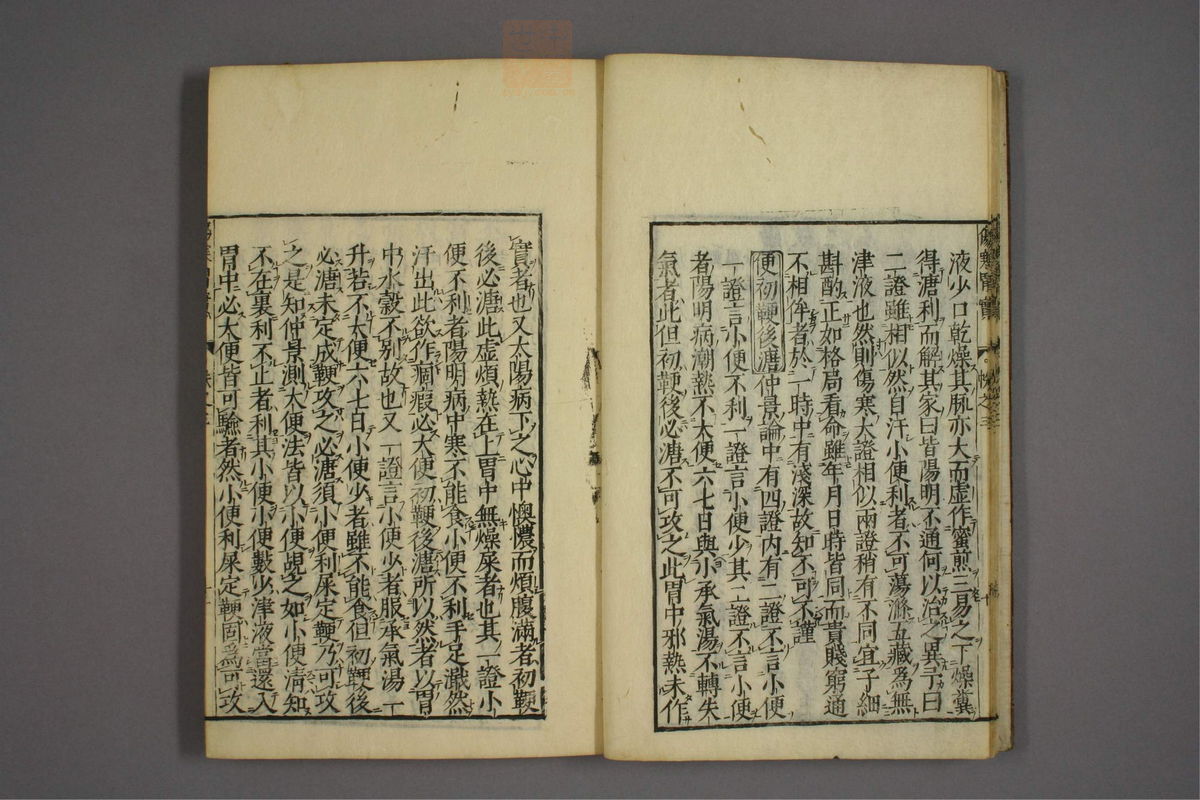 液少口乾燥其脈亦大而虛作蜜煎三易之下燥糞
得溏利而解其家曰皆陽明不通何以治之異予曰
二證雖相似然自汗小便利者不可蕩滌五藏爲無
津液也然則傷寒大證相似兩證稍有不同宜子細
斟酌正如格局看命雖年月日時皆同而貴賤窮通
不相侔者於一時中有淺深故知不可不謹
便初鞕後溏仲景論中有四證内有二證不言小便
一證言小便不利一證言小便少其二證不言小便
者陽明病潮熱不大便六七日與小承氣湯不轉失
氣者此但初鞕後必溏不可攻之此胃中邪熱未作
實者也又太陽病下之心中懊憹而煩腹滿者初鞕
後必溏此虛煩熱在上胃中無燥屎者也其一證小
便不利者陽明病中寒不能食小便不利手足濈然
汗出此欲作痼瘕必大便初鞕後溏所以然者以胃
中水穀不別故也又一證言小便少者服承氣湯一
升若不大便六七日小便少者雖不能食但初鞕後
必溏未定成鞕攻之必溏須小便利屎定鞕乃可攻
之是知仲景測大便法皆以小便覘之如小便清知
不在裏利不止者利其小便小便數少津液當還入
胃中必大便皆可驗者然小便利屎定鞕固爲可攻